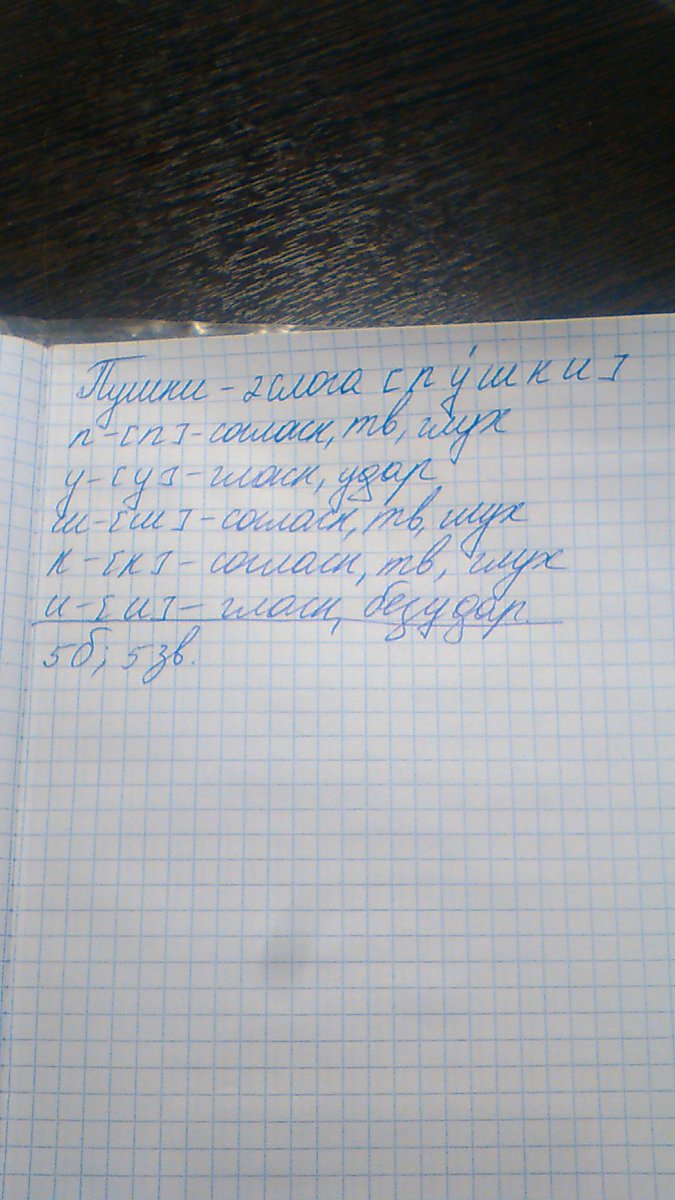 Пушки - 2 слога [п у́ ш к и]
п - [п] - согласн, тв, глух
у - [у] - гласн, удар
ш - [ш] - согласн, тв, глух
к - [к] - согласн, тв, глух
и - [и] - гласн, безудар.
5 б; 5 зв.